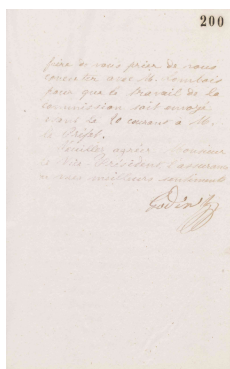 200
faire et vous prier de vous
concerter avec M.
pour que le travail de la
commission soit envoyé
avant le 20 courant à M.
le Préfet.
Veuillez agréer Monsieur
le Vice Président l'assurance
de mes meilleurs sentiments
Godin